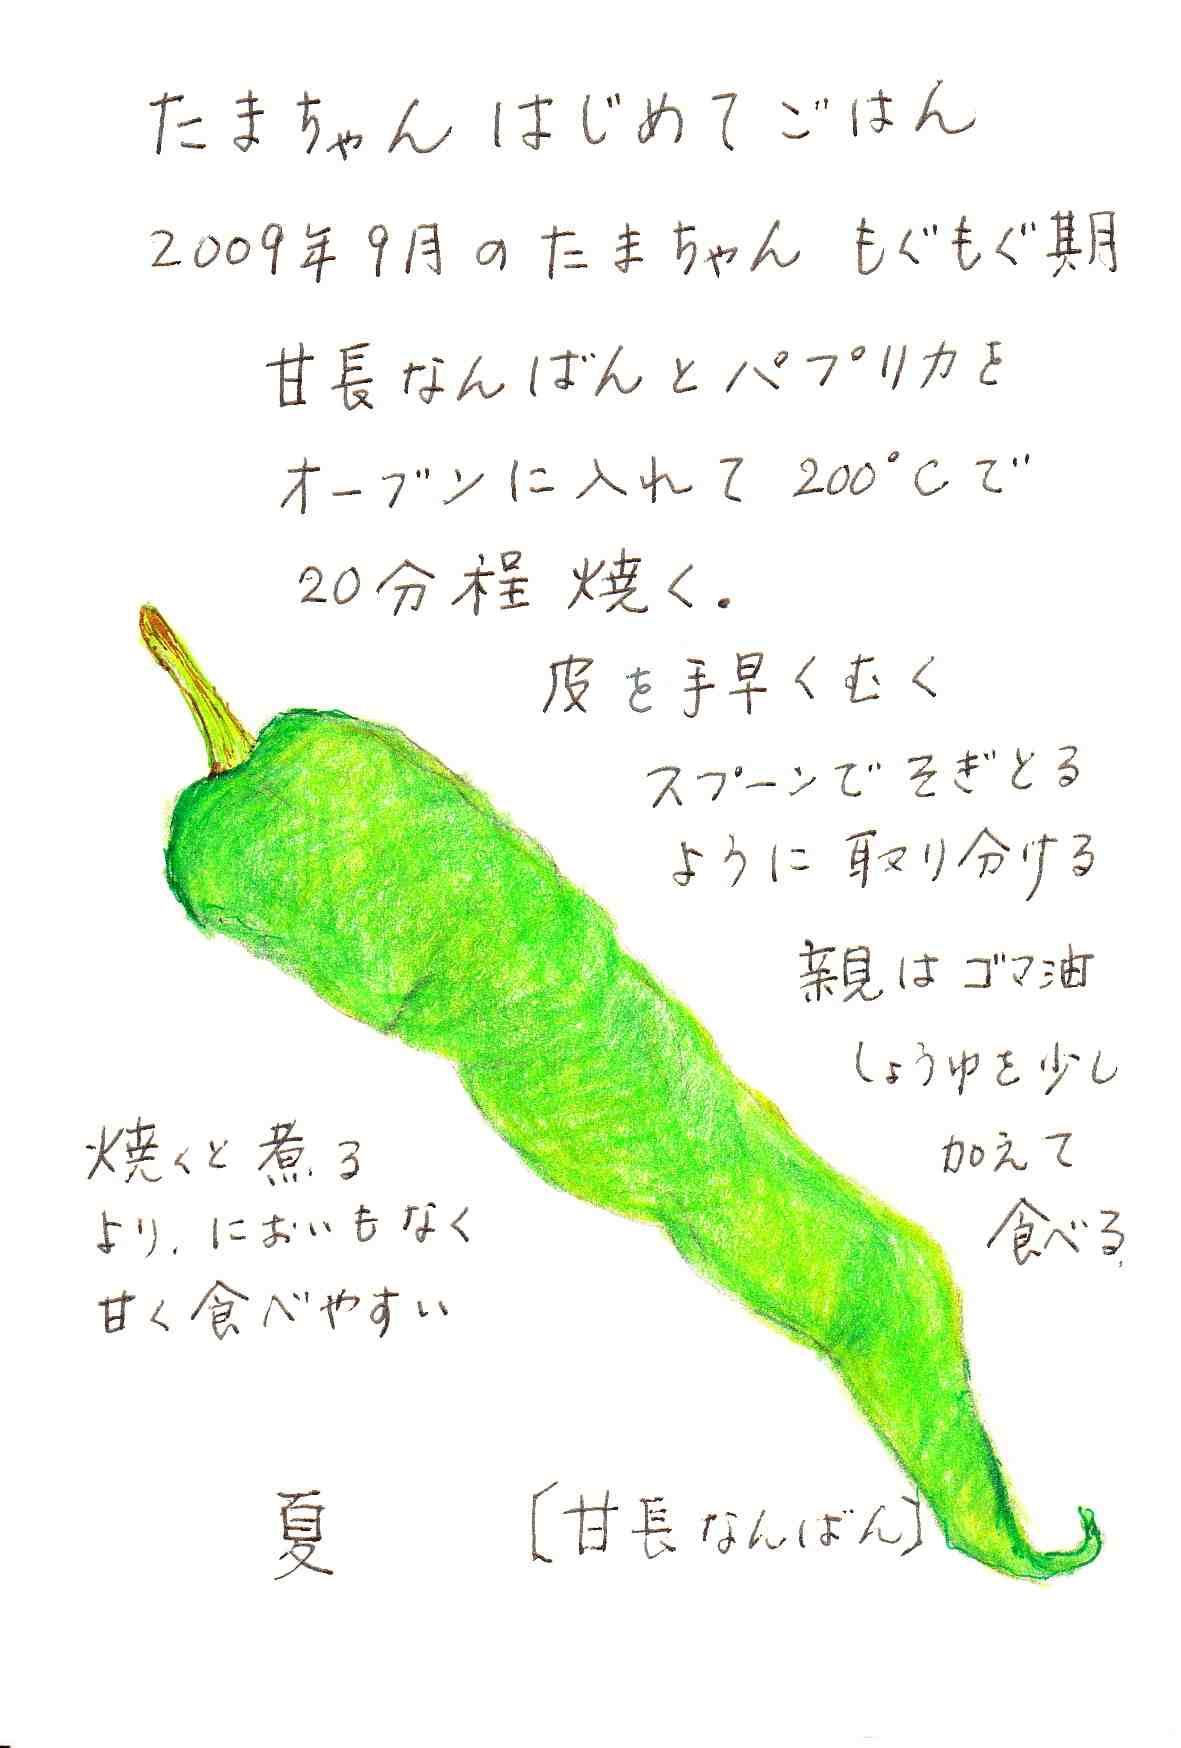 たまちゃん はじめてごはん
2009年9月のたまちゃん もぐもぐ期
甘長なんばんとパプリカを
オーブンに入れて 200°Cで
20分程 焼く.
皮を手早くむく
スプーンでそぎとる
ように取り分ける
親はゴマ油
しょうゆを少し
加えて
食べる
焼くと煮る
より、においもなく
甘く食べやすい
夏
〔甘長なんばん〕